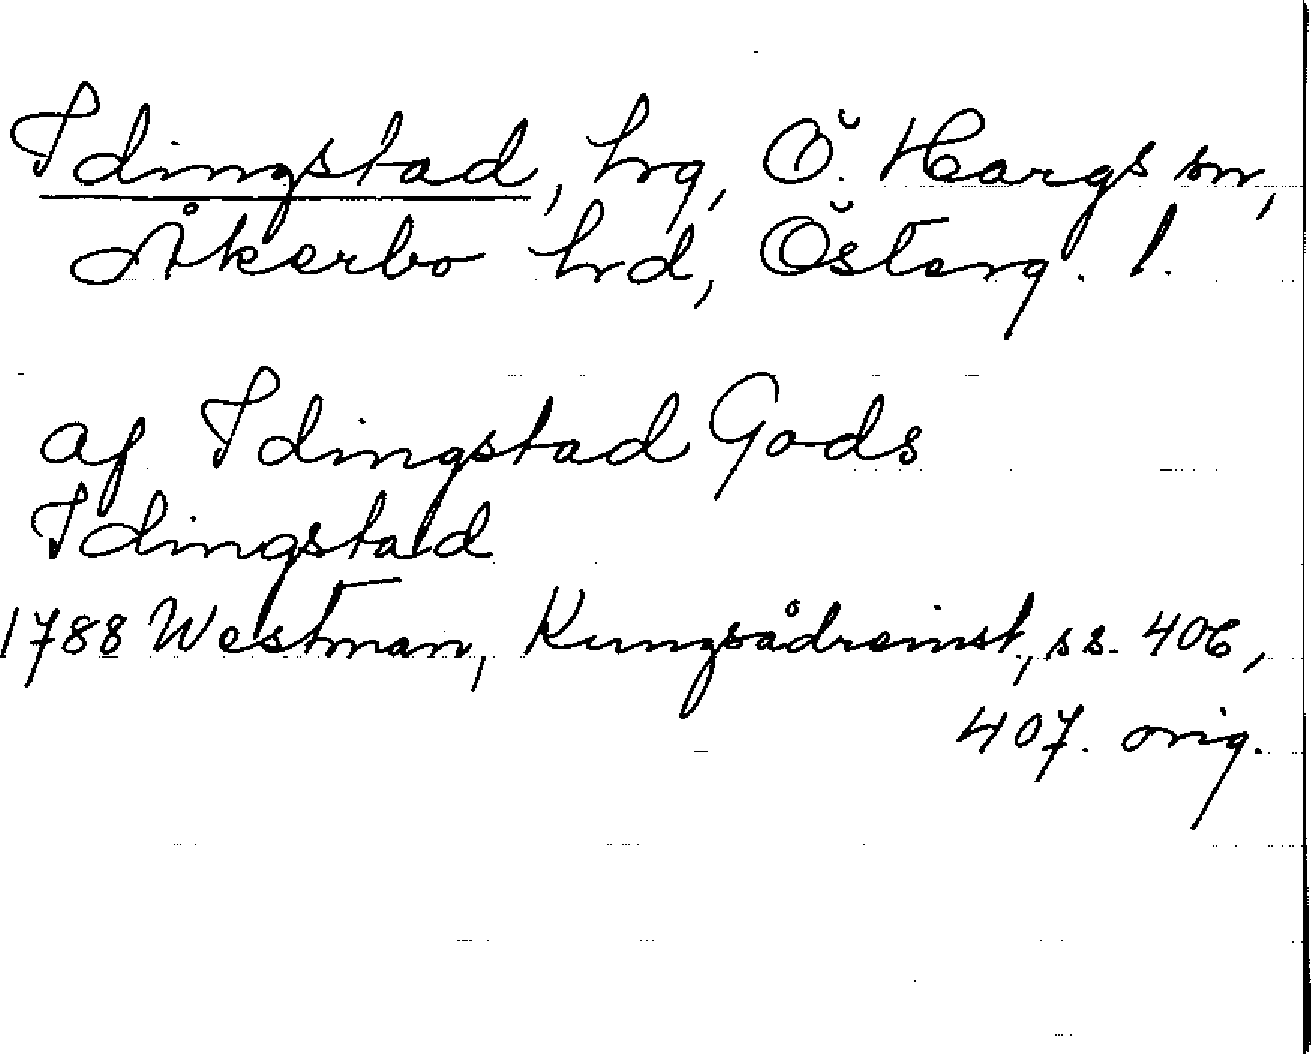 Idingstad, hrg, Ö. Hargs sn,
Åkerbo hrd, Österg. l.
af Idingstad Gods
Idingstad
1788 Westman, Kungsådreinst, ss. 406,
407. orig.